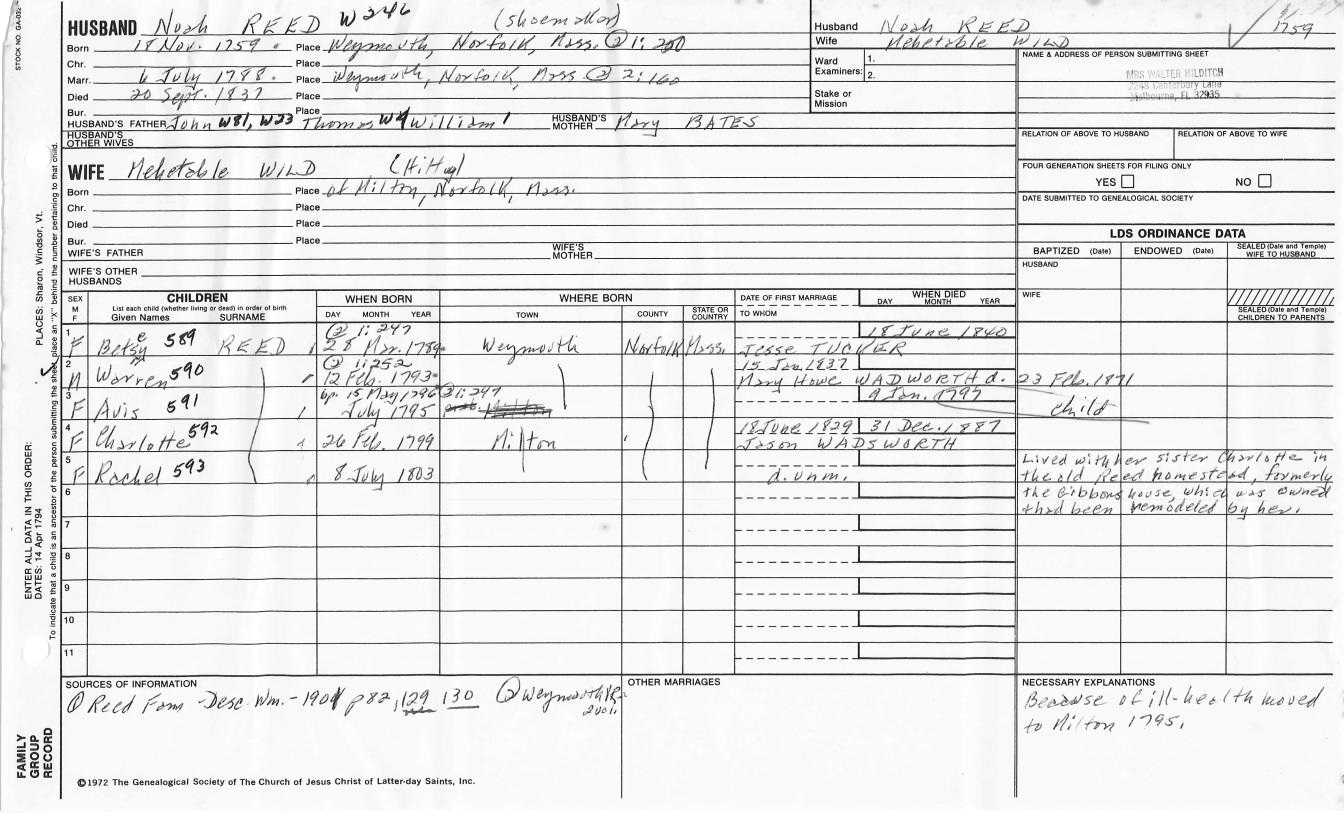 HUSBAND Noah REED W246 (Shoemaker)
Born 18 Nov. 1759 Place Weymouth, Norfolk, Mass. ② 1:250
Chr. Place
Marr. 6 July 1788. Place Weymouth, Norfolk, Mass ② 2:160
Died 20 Sept. 1837 Place
Bur. Place
HUSBAND'S FATHER John W81, W23 Thomas W4 William 1 HUSBAND'S MOTHER Mary BATES
HUSBAND'S OTHER WIVES
Husband Noah REED 1759
Wife Mehetable WILD
Ward Examiners: 1.
2.
Stake or Mission
NAME & ADDRESS OF PERSON SUBMITTING SHEET
MRS WALTER HILDITCH
2248 Canterbury Lane
Melbourne, FL 32935
RELATION OF ABOVE TO HUSBAND RELATION OF ABOVE TO WIFE
FOUR GENERATION SHEETS FOR FILING ONLY
YES NO
DATE SUBMITTED TO GENEALOGICAL SOCIETY
WIFE Mehetable WILD
Born Place of Milton, Norfolk, Mass.
Chr. Place
Died Place
Bur. Place
WIFE'S FATHER WIFE'S MOTHER
WIFE'S OTHER HUSBANDS
LDS ORDINANCE DATA
BAPTIZED (Date) ENDOWED (Date) SEALED (Date and Temple) WIFE TO HUSBAND
HUSBAND
WIFE
SEALED (Date and Temple) CHILDREN TO PARENTS
SEX M F
CHILDREN
List each child (whether living or dead) in order of birth
Given Names SURNAME
WHEN BORN
DAY MONTH YEAR
WHERE BORN
TOWN COUNTY STATE OR COUNTRY
DATE OF FIRST MARRIAGE
TO WHOM
WHEN DIED
DAY MONTH YEAR
1 ② 1:247 18 June 1840
F Betsy 589 REED 28 Mar. 1789 Weymouth Norfolk Mass. Jesse TUCKER
2 ② 1:252 15 Jan 1837
M Warren 590 12 Feb. 1793 Mary Howe WADWORTH d. 23 Feb. 1871
3 bp. 15 May 1796 ② 1:247 9 Jan. 1797
F Avis 591 July 1795 child
4 18 June 1829 31 Dec. 1887
F Charlotte 592 26 Feb. 1799 Milton Jason WADSWORTH
5 F Rachel 593 8 July 1803 d. unm.
Lived with her sister Charlotte in
the old Reed homestead, formerly
the Gibbons house, which was owned
& had been remodeled by her.
6
7
8
9
10
11
SOURCES OF INFORMATION
① Reed Fam - Desc. Wm. - 1901 p 82, 129 130 ② Weymouth VR
OTHER MARRIAGES
NECESSARY EXPLANATIONS
Because of ill-health moved
to Milton 1795.
©1972 The Genealogical Society of The Church of Jesus Christ of Latter-day Saints, Inc.
FAMILY GROUP RECORD
ENTER ALL DATA IN THIS ORDER:
DATES: 14 Apr 1794
PLACES: Sharon, Windsor, Vt.
To indicate that a child is an ancestor of the person submitting the sheet, place an "X" behind the number pertaining to that child.